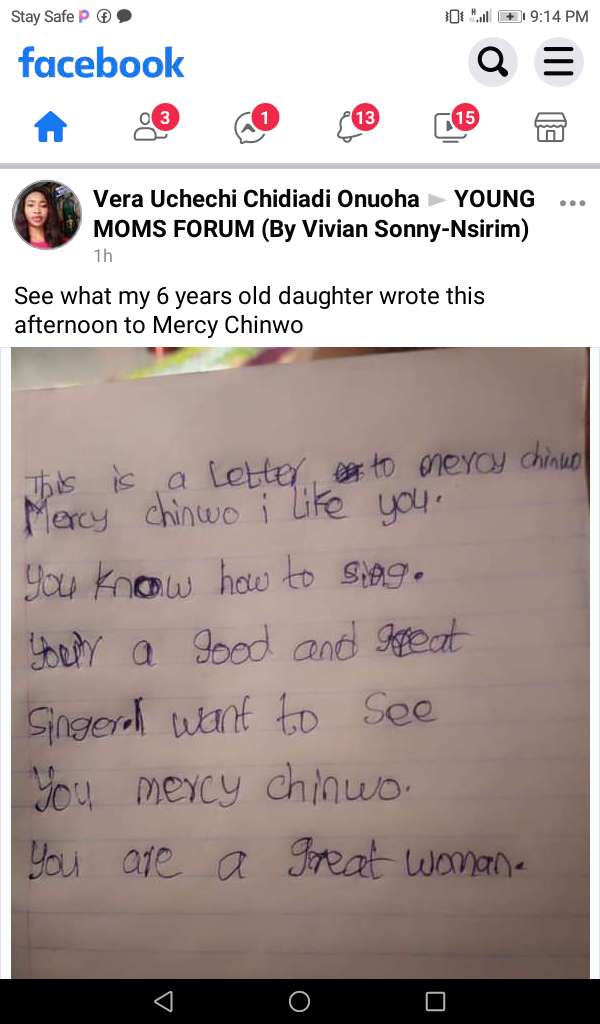 Stay Safe
9:14 PM
facebook
3
1
13
15
Vera Uchechi Chidiadi Onuoha ► YOUNG
MOMS FORUM (By Vivian Sonny-Nsirim)
1h
See what my 6 years old daughter wrote this
afternoon to Mercy Chinwo
This is a Letter to mercy chinwo
Mercy chinwo i like you.
You know how to sing.
Your a good and great
Singer.I want to See
You mercy chinwo.
You are a great woman.